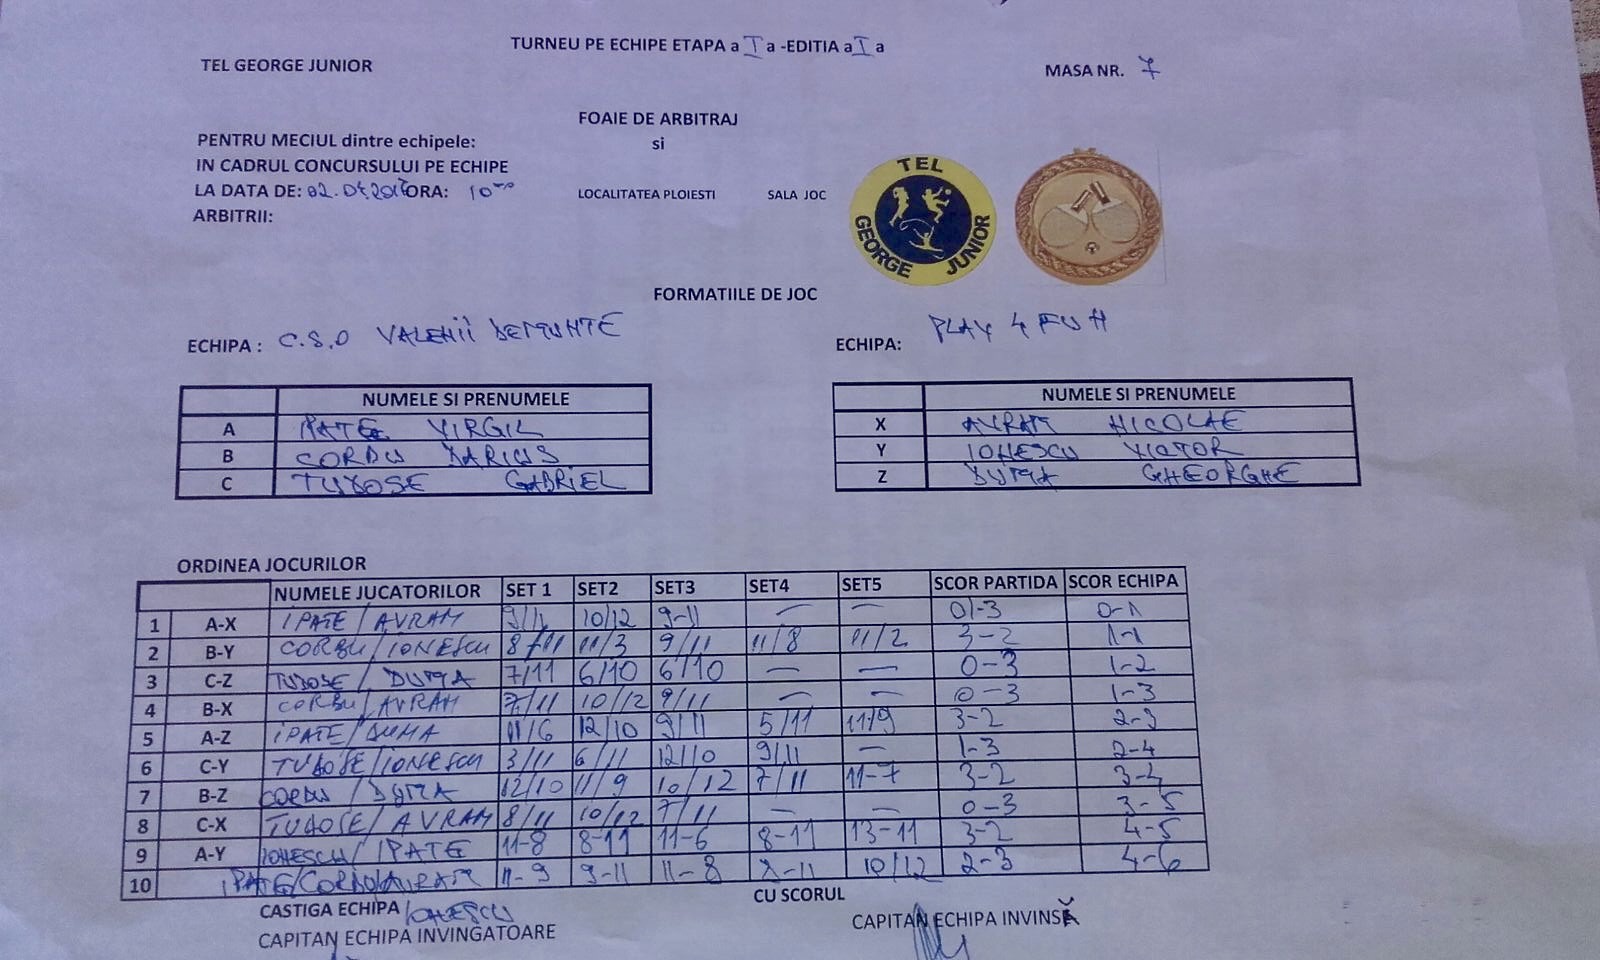 TURNEU PE ECHIPE ETAPA a I a -EDITIA a I a
TEL GEORGE JUNIOR
MASA NR. 7
FOAIE DE ARBITRAJ
PENTRU MECIUL dintre echipele: si
IN CADRUL CONCURSULUI PE ECHIPE
LA DATA DE: ORA: 10 LOCALITATEA PLOIESTI SALA JOC
ARBITRII:
TEL GEORGE JUNIOR
FORMATIILE DE JOC
ECHIPA : C.S.O VALENII DEMUNTE
ECHIPA: PLAY 4 FUN
NUMELE SI PRENUMELE
A IPATE VIRGIL
B CORBU DARIUS
C TUDOSE GABRIEL
NUMELE SI PRENUMELE
X AVRAM NICOLAE
Y IONESCU VICTOR
Z DUMA GHEORGHE
ORDINEA JOCURILOR
NUMELE JUCATORILOR SET 1 SET2 SET3 SET4 SET5 SCOR PARTIDA SCOR ECHIPA
1 A-X IPATE/AVRAM 9/11 10/12 9-11 — — 0-3 0-1
2 B-Y CORBU/IONESCU 8/11 11/3 9/11 11/8 11/2 3-2 1-1
3 C-Z TUDOSE/DUMA 7/11 6/10 6/10 — — 0-3 1-2
4 B-X CORBU/AVRAM 7/11 10/12 9/11 — — 0-3 1-3
5 A-Z IPATE/DUMA 11/6 12/10 9/11 5/11 11/9 3-2 2-3
6 C-Y TUDOSE/IONESCU 3/11 6/11 12/10 9/11 — 1-3 2-4
7 B-Z CORBU/DUMA 12/10 11/9 10/12 7/11 11-7 3-2 3-4
8 C-X TUDOSE/AVRAM 8/11 10/12 7/11 — — 0-3 3-5
9 A-Y IONESCU/IPATE 11-8 8-11 11-6 8-11 13-11 3-2 4-5
10 IPATE/CORBU/AVRAM 11-9 9-11 11-8 8-11 10/12 2-3 4-6
CASTIGA ECHIPA /IONESCU CU SCORUL
CAPITAN ECHIPA INVINGATOARE CAPITAN ECHIPA INVINSĂ